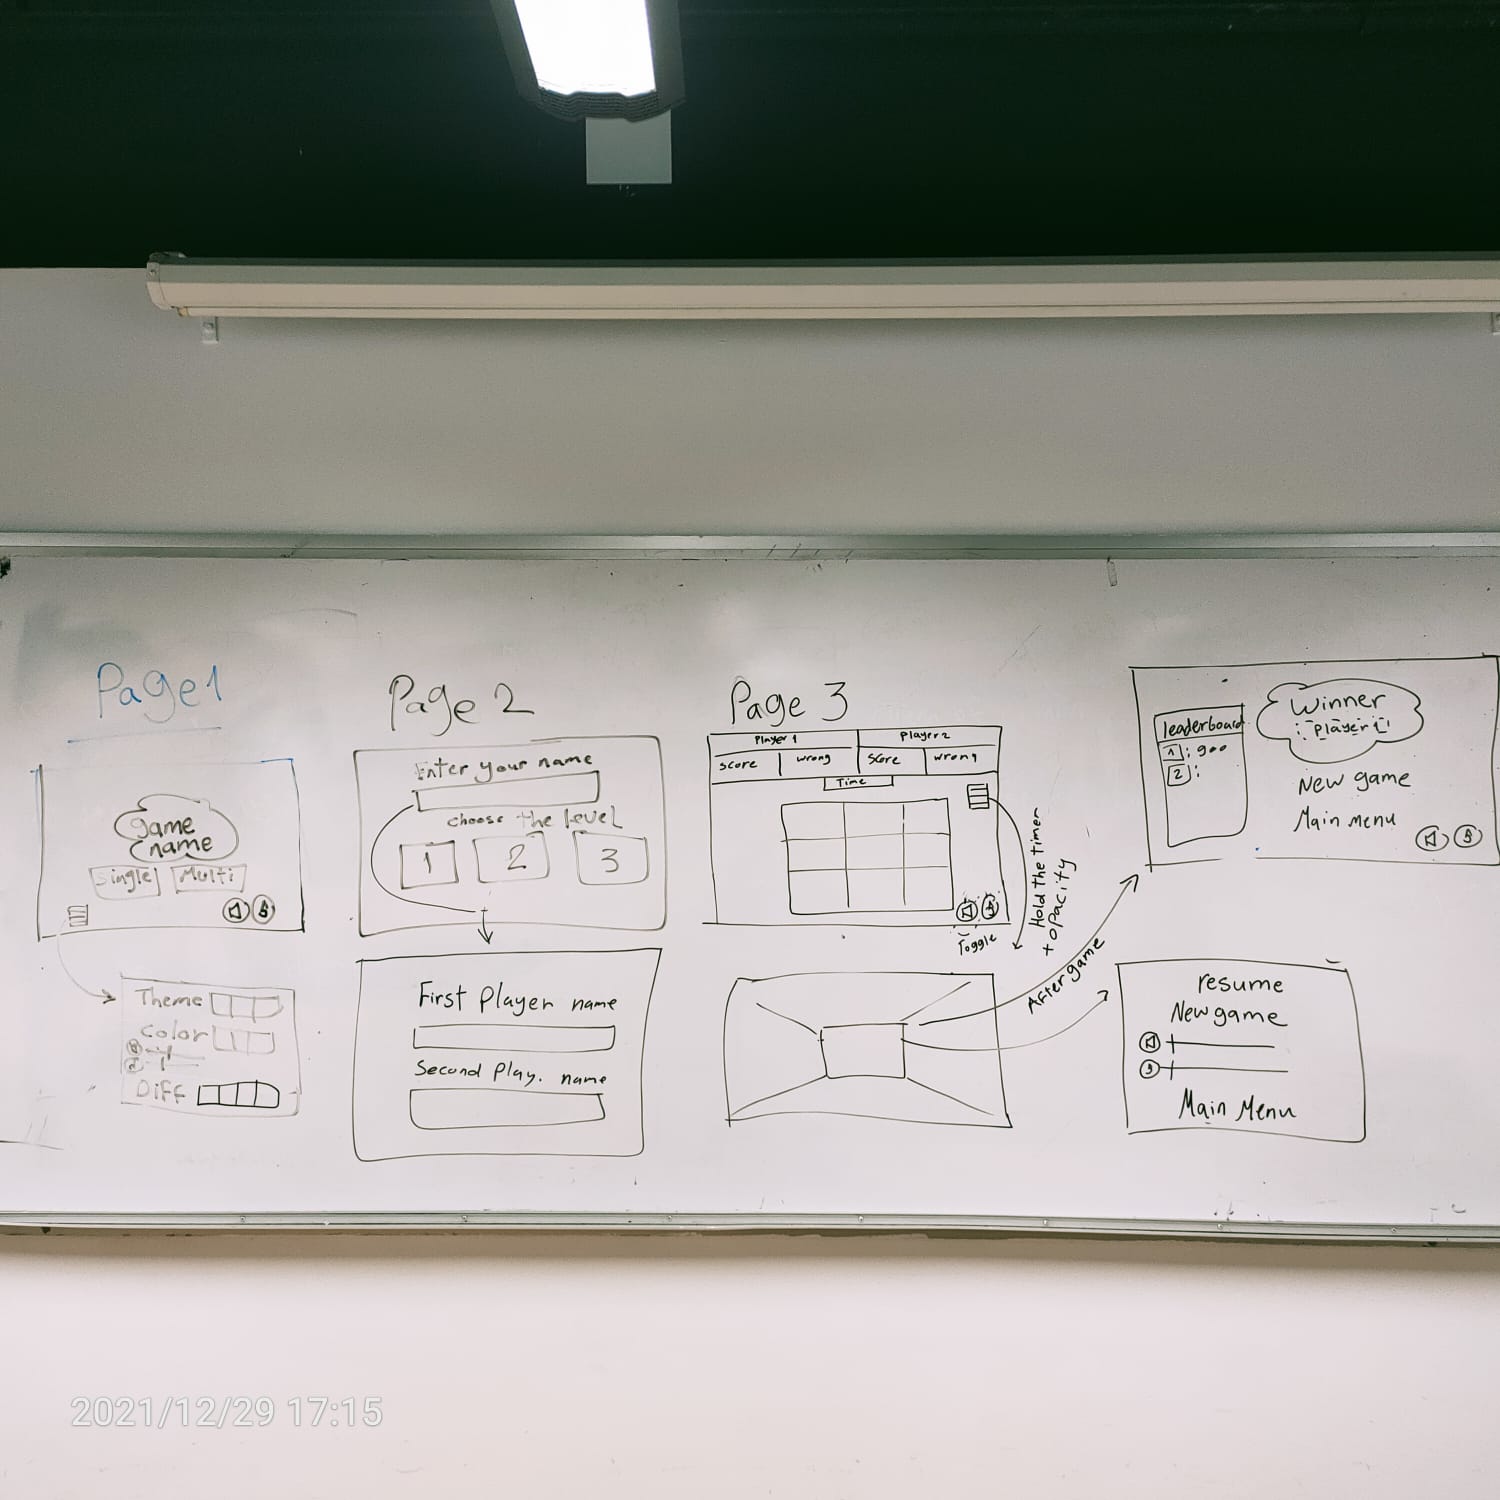 Page 1
game
name
Single
Multi
Theme
Color
Diff
Page 2
Enter your name
choose the level
1
2
3
First Player name
Second Play. name
Page 3
Player 1
Player 2
Score
wrong
Score
wrong
Time
Toggle
Hold the timer
+ opacity
After game
leaderboard
1 : 900
2 :
Winner
: player 1
New game
Main menu
resume
New game
Main Menu
2021/12/29 17:15